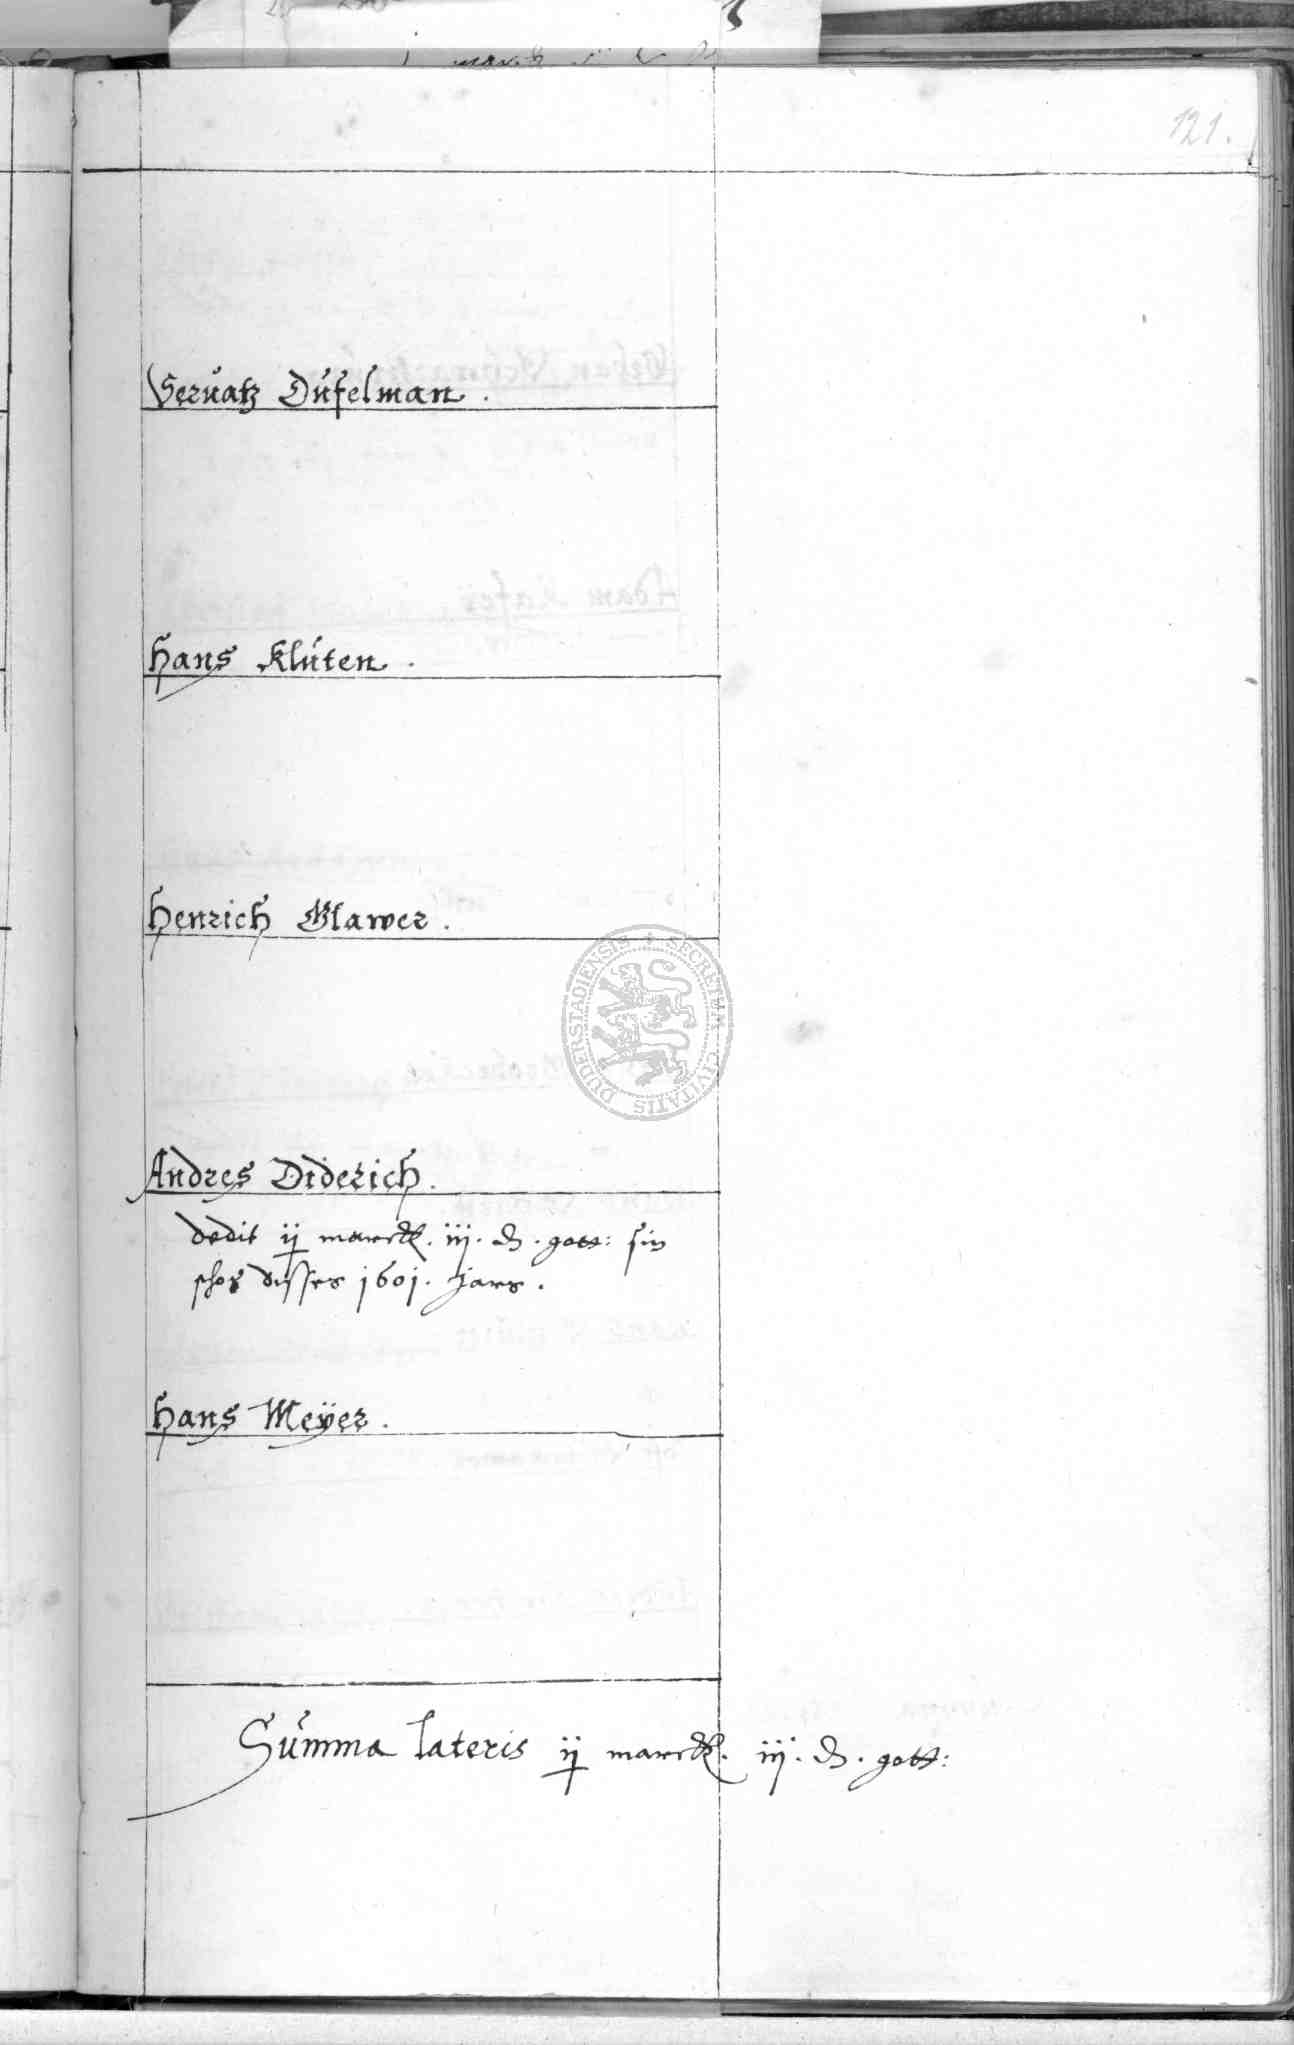 121.
Servatz Dúfelman.
Hans Klúten.
Henrich Glawer.
Andres Diderich.
dedit ij marck. iij. ₰. gott: sin
schos disses 1601. Jars.
Hans Meÿer.
Súmma lateris ij marck. iij. ₰. gott:
SECRETUM CIVITATIS DUDERSTADIENSIS